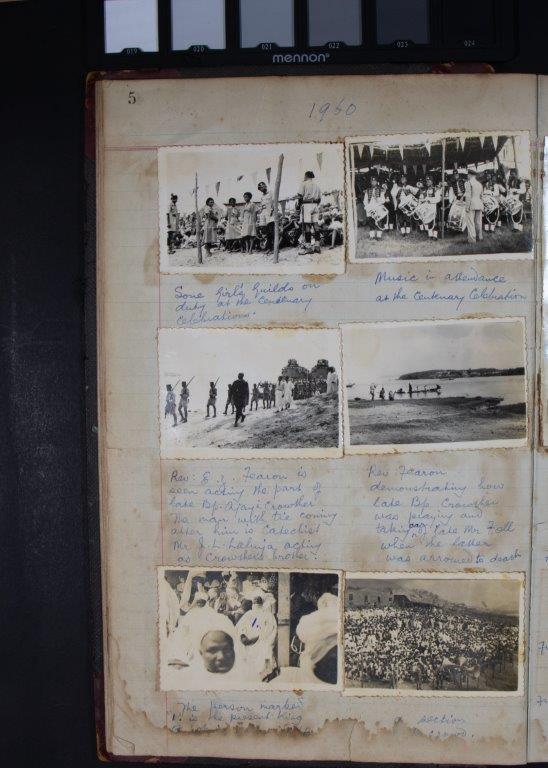 019 020 021 022 023 024
mennon
5
1960
Some Girls' Guilds on
duty at the Centenary
Celebrations.
Music in attendance
at the Centenary Celebration
Rev: E. Fearon is
seen acting the part of
late Bp. Ajayi Crowther.
The man with tie coming
after him is Catechist
Mr. J. L. acting
as Crowther's brother.
Rev. Fearon
demonstrating how
late Bp. Crowther
was praying and
taking care of late Mr. Fell
when the latter
was arrowed to death
1.
The person marked
1. is the present King
a section